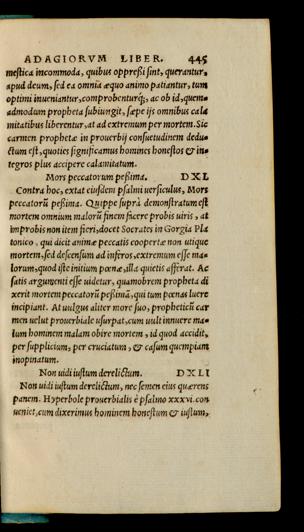 ADAGIORVM LIBER. 445
mesticæ incommoda, quibus oppreßi sint, querantur,
apud deum, sed ea omnia æquo animo patiantur, tum
optimi inueniantur, comprobenturq́;, ac ob id, quem=
admodum propheta subiungit, sæpe ijs omnibus cala
mitatibus liberentur, at ad extremum per mortem. Sic
carmen prophetæ in prouerbij consuetudinem dedu=
ctum est, quoties significamus homines honestos & in=
tegros plus accipere calamitatum.
Mors peccatorum peßima. DXL
Contra hoc, extat eiusdem psalmi uersiculus, Mors
peccatorũ peßima. Quippe suprà demonstratum est
mortem omnium malorũ finem facere probis uiris, at
improbis non item fieri, docet Socrates in Gorgia Pla
tonico, qui dicit animæ peccatis coopertæ non utique
mortem, sed descensum ad inferos, extremum esse ma=
lorum, quod iste initium pœnæ, illa quietis afferat. Ac
satis argumenti esse uidetur, quamobrem propheta di
xerit mortem peccatorũ peßimã, qui tum pœnas luere
incipiant. At uulgus aliter more suo, propheticũ car
men uelut prouerbiale usurpat, cum uult innuere ma=
lum hominem malam obire mortem, id quod accidit,
per supplicium, per cruciatum, & casum quempiam
inopinatum.
Non uidi iustum derelictum. DXLI
Non uidi iustum derelictum, nec semen eius quærens
panem. Hyperbole prouerbialis è psalmo xxxvi. con
ueniet, cum dixerimus hominem honestum & iustum,